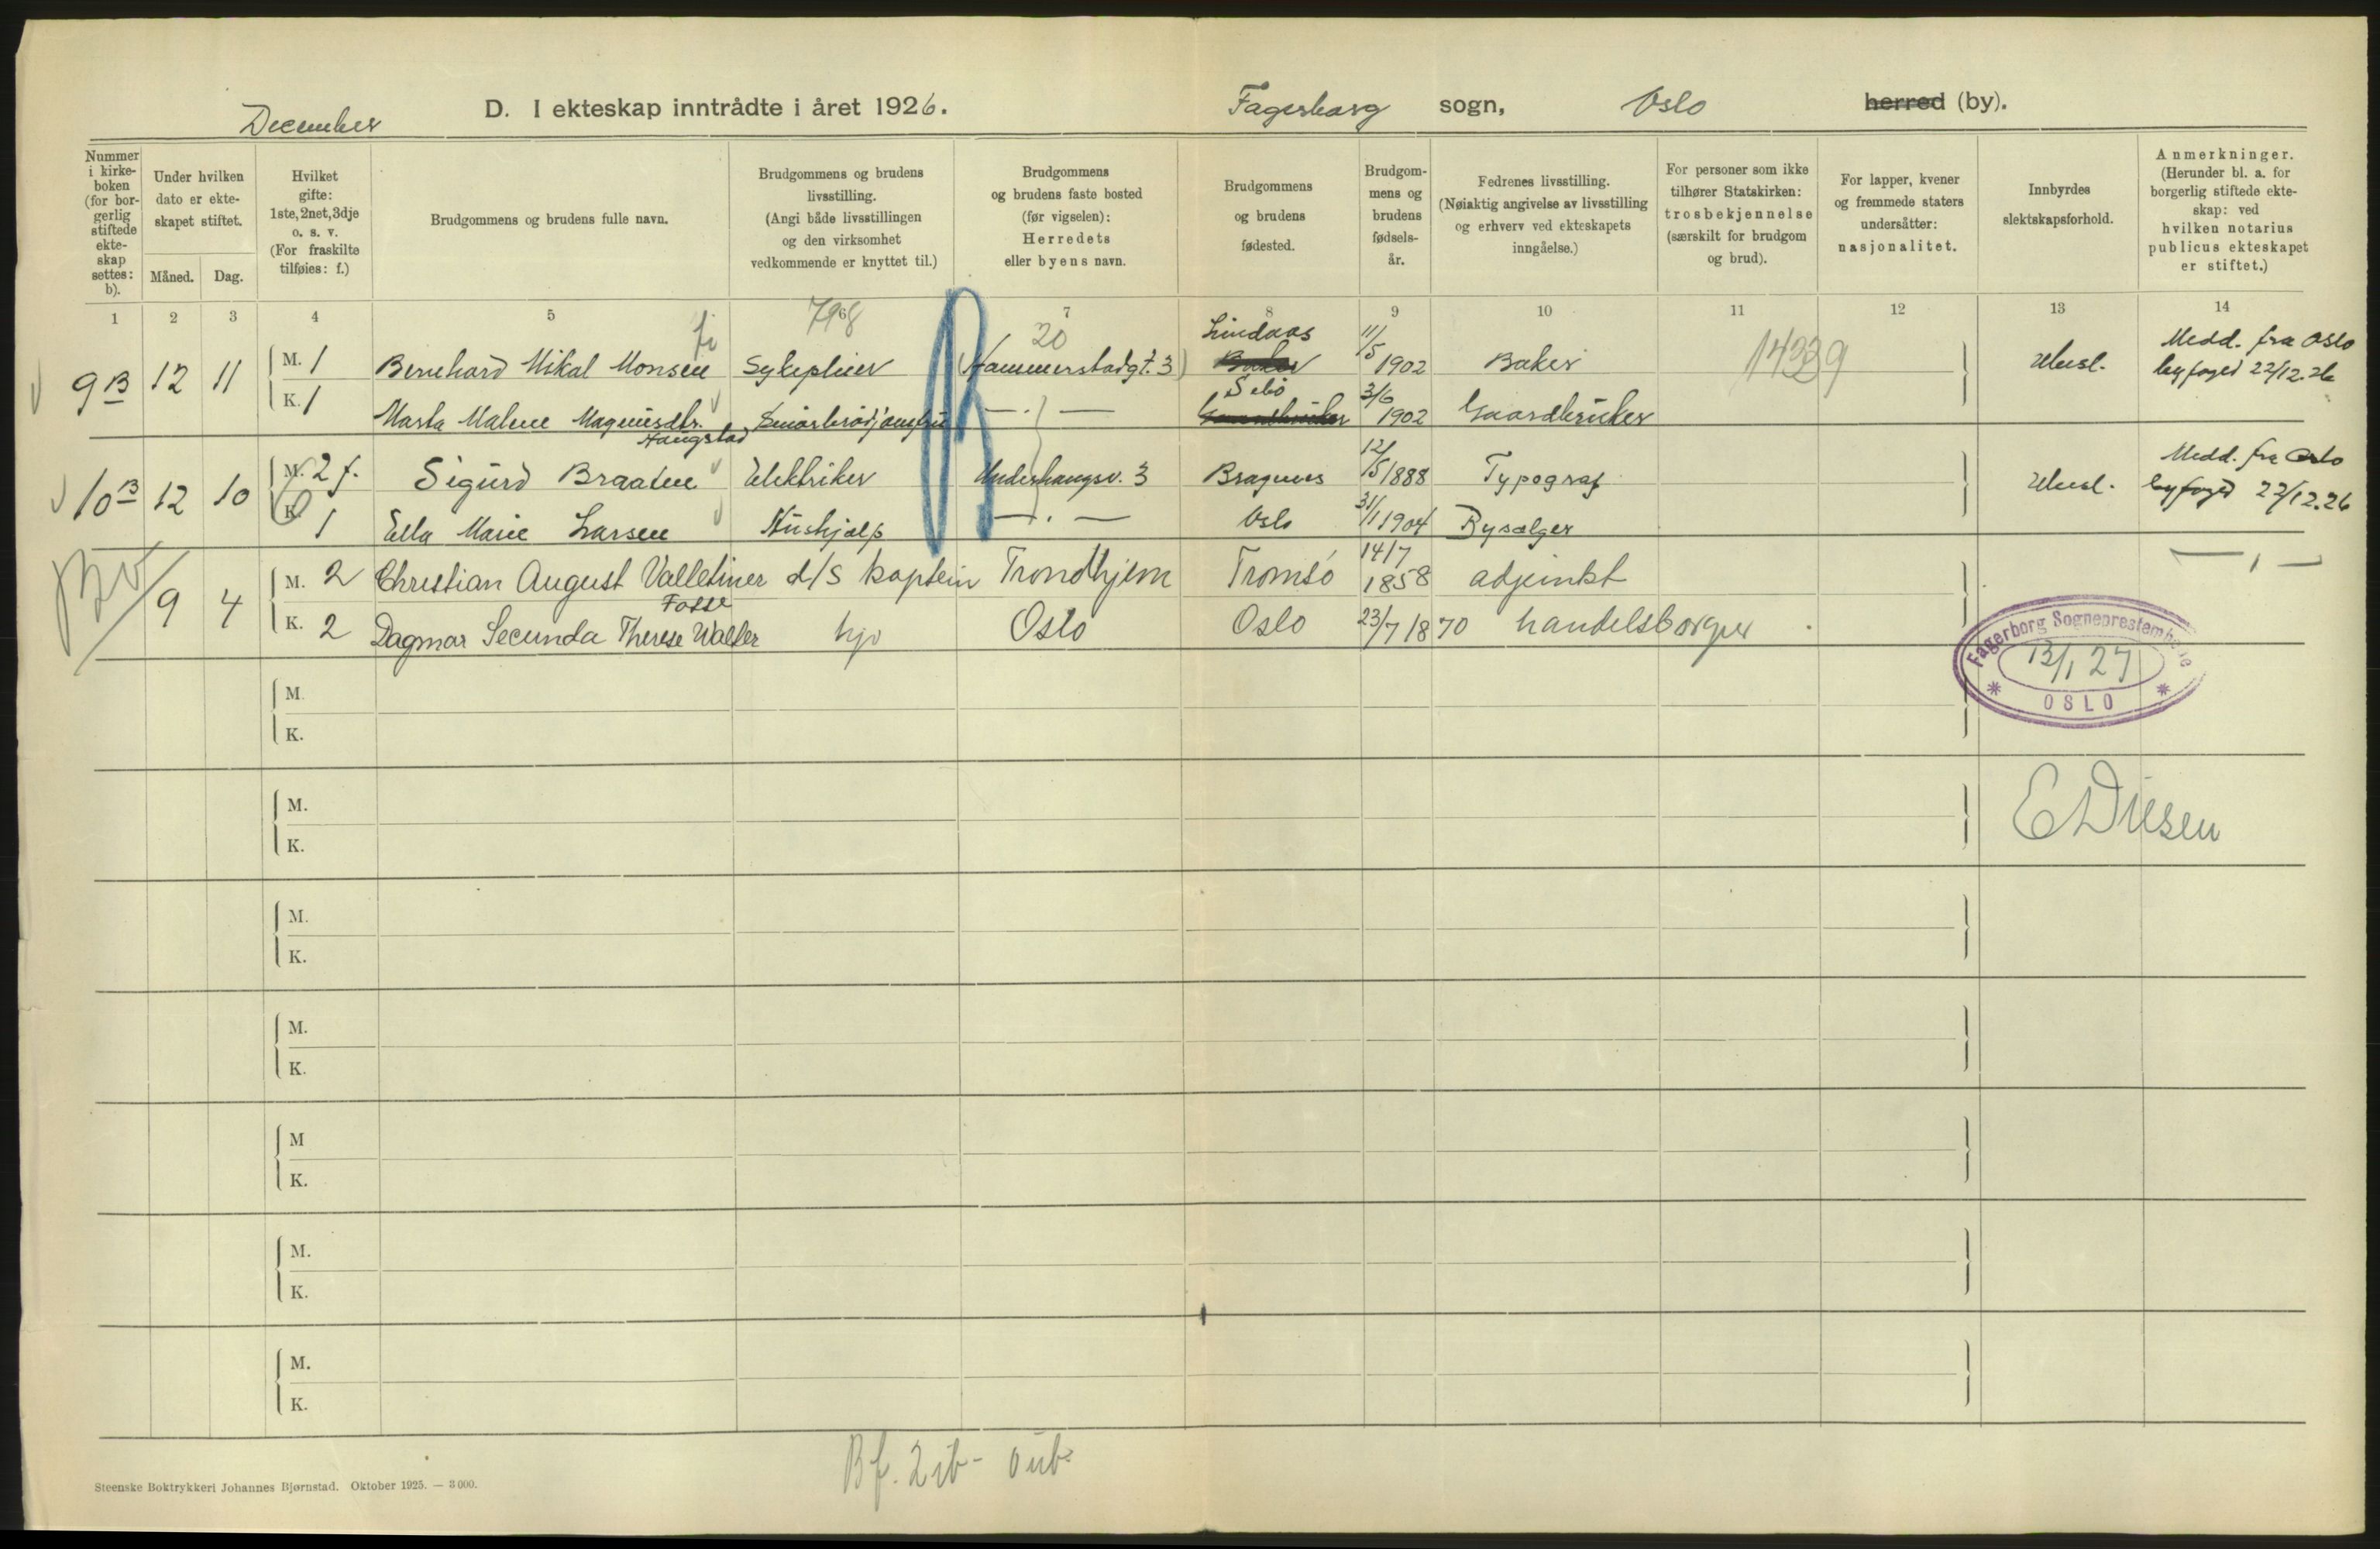 December D. I ekteskap inntrådte i året 1926. Fagerborg sogn, Oslo herred (by).
Nummer i kirkeboken (for borgerlig stiftede ekteskap settes: b).
Under hvilken dato er ekteskapet stiftet.
Måned. Dag.
Hvilket gifte: 1ste, 2net, 3dje o. s. v. (For fraskilte tilføies: f.)
Brudgommens og brudens fulle navn.
Brudgommens og brudens livsstilling. (Angi både livsstillingen og den virksomhet vedkommende er knyttet til.)
Brudgommens og brudens faste bosted (før vigselen): Herredets eller byens navn.
Brudgommens og brudens fødested.
Brudgommens og brudens fødselsår.
Fedrenes livsstilling. (Nøiaktig angivelse av livsstilling og erhverv ved ekteskapets inngåelse.)
For personer som ikke tilhører Statskirken: trosbekjennelse (særskilt for brudgom og brud).
For lapper, kvener og fremmede staters undersåtter: nasjonalitet.
Innbyrdes slektskapsforhold.
Anmerkninger. (Herunder bl. a. for borgerlig stiftede ekteskap: ved hvilken notarius publicus ekteskapet er stiftet.)
1 2 3 4 5 6 7 8 9 10 11 12 13 14
798 20 14339
9 B 12 11 M. 1 Bernhard Mikal Monsen Sykepleier (Hammerstadgt. 3) Lindaas 11/5 1902 Baker Ubesl. Medd. fra Oslo byfoged 22/12.26
K. 1 Marta Malene Magnusdtr. Haugstad Smørbrødjomfru —.— Sebø 3/6 1902 Gaardbruker
10 B 12 10 M. 2 f. Sigurd Braaten Elektriker Underhaugsv. 3 Bragnes 12/5 1888 Typograf Ubesl. Medd. fra Oslo byfoged 22/12.26
K. 1 Ella Marie Larsen Hushjælp —.— Oslo 31/1 1904 Bysælger
9 4 M. 2 Christian August Valletiner d/s kaptein Trondhjem Tromsö 14/7 1858 adjunkt — " —
K. 2 Dagmar Secunda Therese Walter Fosse hjv Oslo Oslo 23/7 1870 handelsborger
Fagerborg Sogneprestembede
13/1 27
OSLO
M.
K.
M.
K.
E Diesen
M.
K.
M.
K.
M
K.
M.
K.
M.
K.
Bf. 2 ib - 0 ub
Steenske Boktrykkeri Johannes Bjørnstad. Oktober 1925. — 3000.